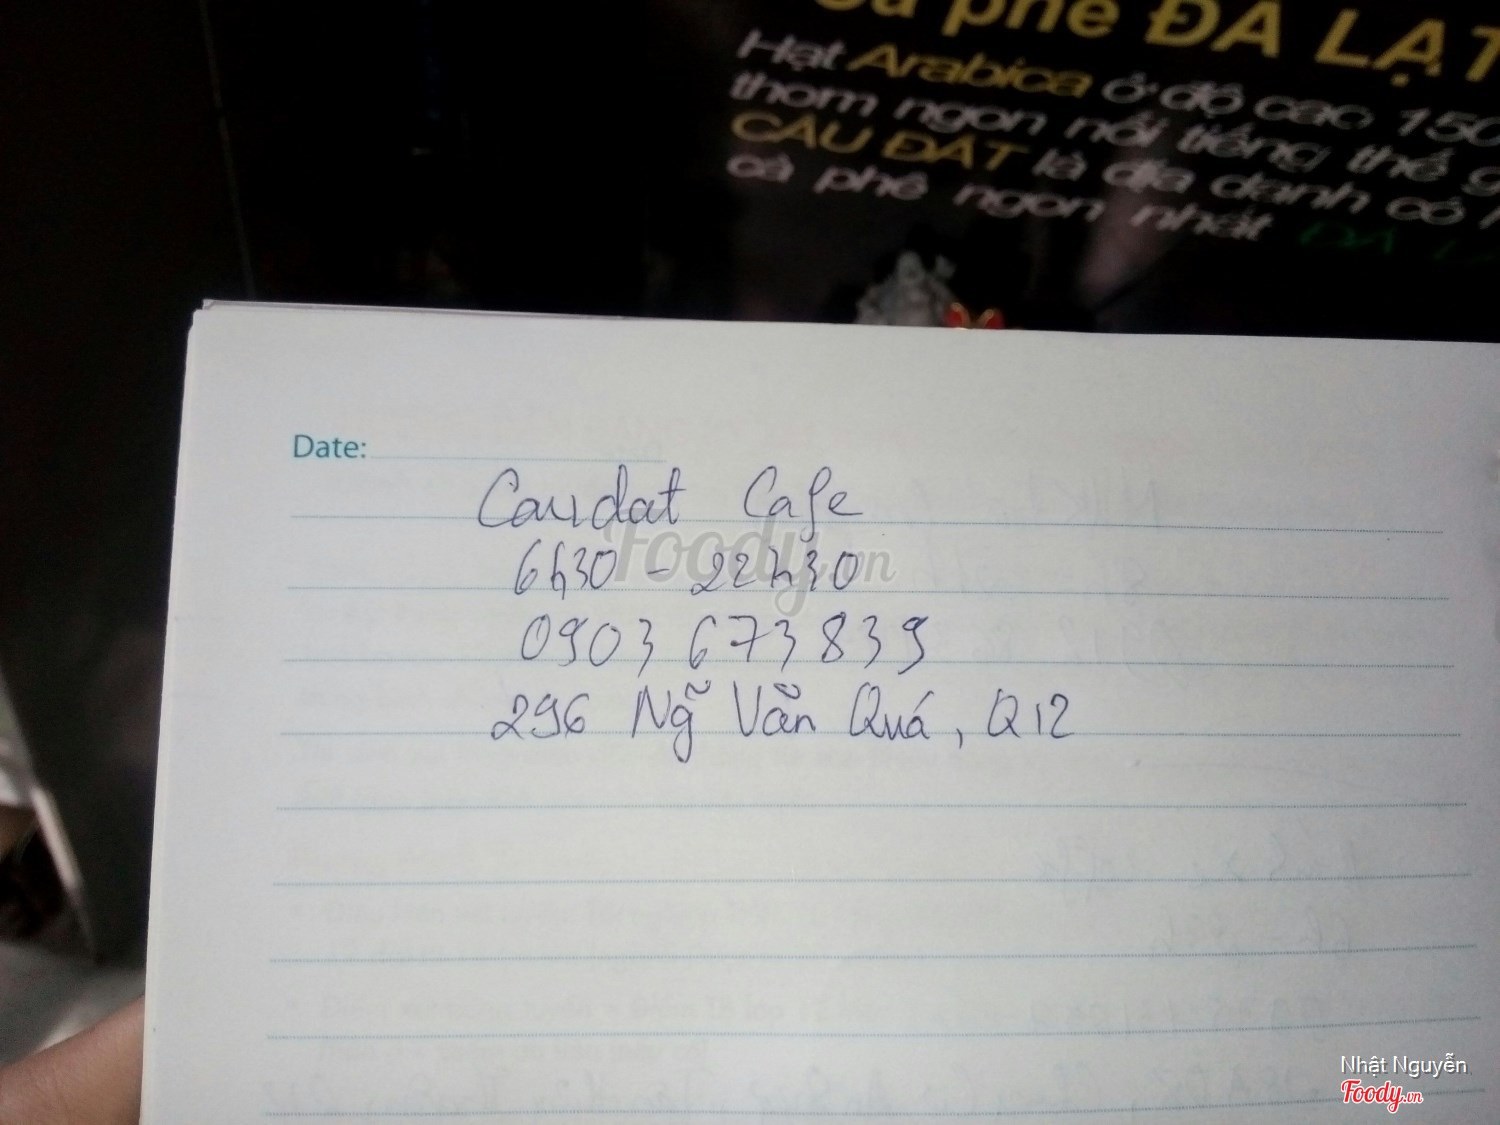 phê ĐÀ LẠT
Hạt Arabica ở độ cao 150
thơm ngon nổi tiếng thế g
CẦU ĐẤT là địa danh có
cà phê ngon nhất ĐÀ L
Date:
Caudat Cafe
6h30 - 22h30
0903 673 839
296 Ng~ Văn Quá, Q12
Foody.vn
Nhật Nguyễn
Foody.vn